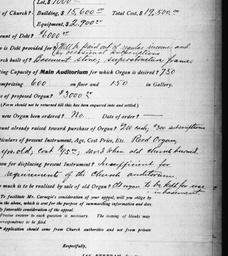 Lot $1000—
of Church? Building, $15,600.00 Total Cost, $19,500.00
Equipment, $2,900.00
ount of Debt? $6000
is Debt provided for? Will be paid out of regular income, and
by occasional subscriptions
ch built of? Basement stone; superstructure frame
ting Capacity of Main Auditorium for Which Organ is desired? 750
mprising 600 on floor and 150 in Gallery.
e of proposed Organ? $3000.00
(Form should not be returned till this has been enquired into and settled.)
new Organ been ordered? No. Date of order —
ount already raised toward purchase of Organ? $200 cash, $300 subscriptions
rticulars of present Instrument, Age, Cost Price, Etc. Reed Organ,
years old, cost $95.00; used when old church burned.
son for displacing present Instrument? Insufficient for
requirements of the Church auditorium
much is to be realised by sale of old Organ? Old organ to be kept for use
in basement.
To facilitate Mr. Carnegie's consideration of your appeal, will you oblige by
Precise answer to each question is necessary. The coining of blanks may
correspondence to be filed.
Application should come from Church authorities and not from private
Respectfully,